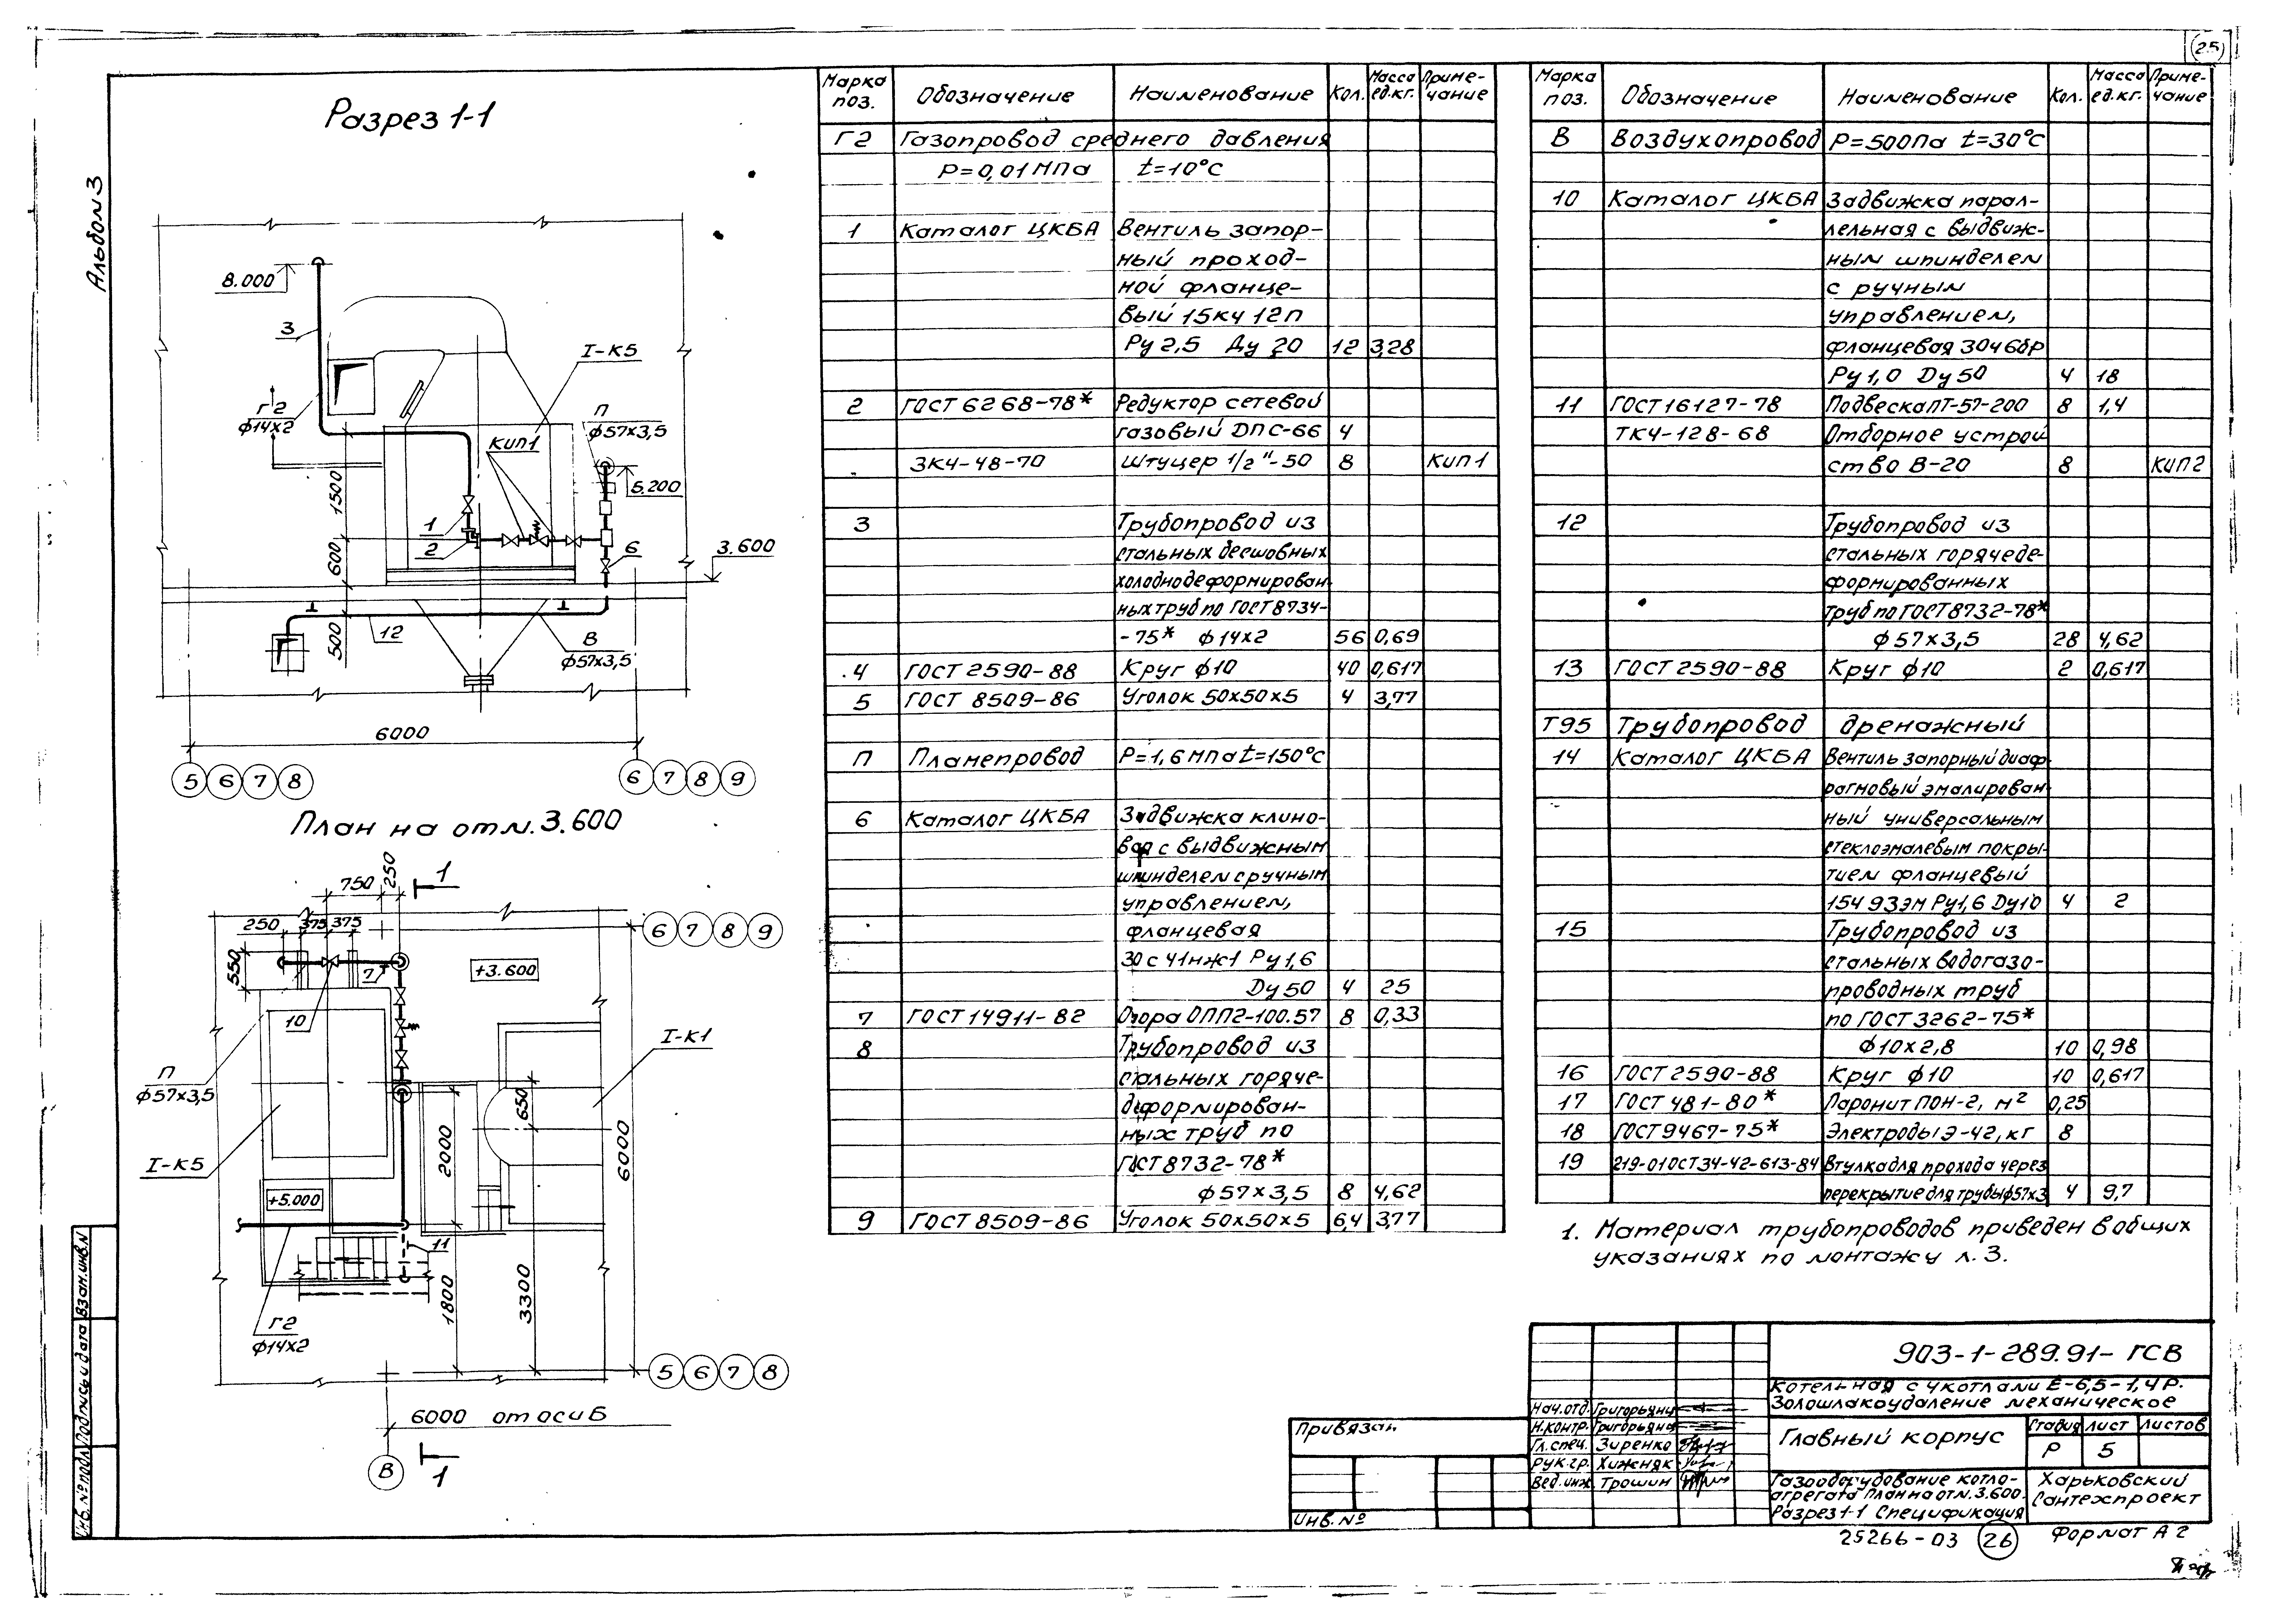 25
Альбом 3
Разрез 1-1
8.000
3
I-К5
Г2
ф14х2
П
ф57х3,5
КИП1
5.200
1500
1
2
6
600
3.600
500
12
В
ф57х3,5
6000
5 6 7 8
6 7 8 9
План на отм. 3.600
750
250
1
250
375
375
6 7 8 9
550
7
+3.600
10
I-К1
П
ф57х3,5
650
2000
6000
I-К5
+5.000
11
1800
3300
Г2
ф14х2
5 6 7 8
6000 от оси Б
В
1
Марка поз.
Обозначение
Наименование
Кол.
Масса ед.кг.
Приме-чание
Г2 Газопровод среднего давления
Р=0,01МПа t=10°С
1 Каталог ЦКБА Вентиль запор-
ный проход-
ной фланце-
вый 15кч 12п
Ру 2,5 Ду 20 12 3,28
2 ГОСТ 6268-78* Редуктор сетевой
газовый ДПС-66 4
ЗК4-48-70 Штуцер 1/2"-50 8 КИП1
3 Трубопровод из
стальных бесшовных
холоднодеформирован
ных труб по ГОСТ 8734-
-75* ф14х2 56 0,69
4 ГОСТ 2590-88 Круг ф10 40 0,617
5 ГОСТ 8509-86 Уголок 50х50х5 4 3,77
П Пламепровод Р=1,6МПа t=150°С
6 Каталог ЦКБА Задвижка клино-
вая с выдвижным
шпинделем с ручным
управлением,
фланцевая
30с 41нж1 Ру1,6
Dу50 4 25
7 ГОСТ 14911-82 Опора ОПП2-100.57 8 0,33
8 Трубопровод из
стальных горяче-
деформирован-
ных труб по
ГОСТ 8732-78*
ф57х3,5 8 4,62
9 ГОСТ 8509-86 Уголок 50х50х5 6,4 3,77
Марка поз.
Обозначение
Наименование
Кол.
Масса ед.кг.
Приме-чание
В Воздухопровод Р=500Па t=30°С
10 Каталог ЦКБА Задвижка парал-
лельная с выдвиж-
ным шпинделем
с ручным
управлением,
фланцевая 30ч6бр
Ру1,0 Dу50 4 18
11 ГОСТ 16127-78 Подвеска ПГ-57-200 8 1,4
ТК4-128-68 Отборное устрой
ство В-20 8 КИП2
12 Трубопровод из
стальных горячеде-
формированных
труб по ГОСТ 8732-78*
ф57х3,5 28 4,62
13 ГОСТ 2590-88 Круг ф10 2 0,617
Т95 Трубопровод дренажный
14 Каталог ЦКБА Вентиль запорный диаф
рагмовый эмалирован
ный универсальным
стеклоэмалевым покры-
тием фланцевый
15ч 93эм Ру1,6 Dу10 4 2
15 Трубопровод из
стальных водогазо-
проводных труб
по ГОСТ 3262-75*
ф10х2,8 10 0,98
16 ГОСТ 2590-88 Круг ф10 10 0,617
17 ГОСТ 481-80* Паронит ПОН-2, м² 0,25
18 ГОСТ 9467-75* Электроды Э-42, кг 8
19 219-01ОСТ34-42-613-84 Втулка для прохода через
перекрытие для трубы ф57х3 4 9,7
1. Материал трубопроводов приведен в общих
указаниях по монтажу л. 3.
903-1-289.91-ГСВ
Котельная с 4 котлами Е-6,5-1,4Р.
Золошлакоудаление механическое
Нач.отд. Григорьянц
Н.контр. Григорьянц
Гл.спец. Зиренко
Рук.гр. Хижняк
Вед.инж. Трошин
Главный корпус
Стадия Лист Листов
Р 5
Газооборудование котло-
агрегата План на отм. 3.600.
Разрез 1-1 Спецификация
Харьковский
Сантехпроект
Привязан
Инв.№
25266-03 26 Формат А2
Инв.№ подл. Подпись и дата Взам.инв.№